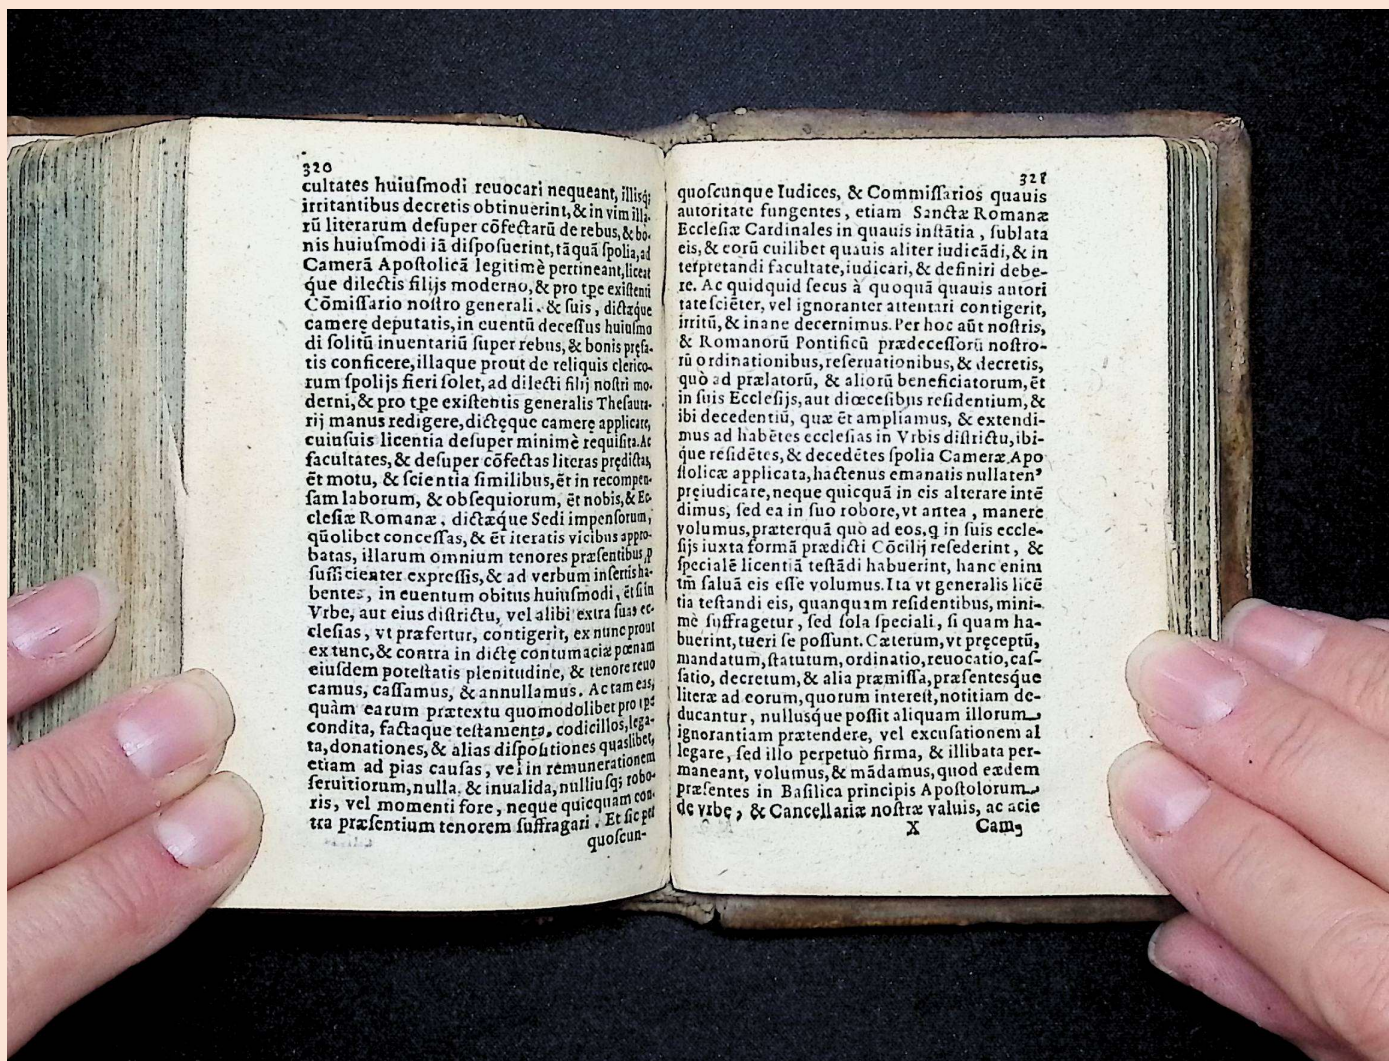 320
cultates huiuſmodi reuocari nequeant, illiſq;
irritantibus decretis obtinuerint, & in vim illa-
rū literarum deſuper cōfectarū de rebus, & bo-
nis huiuſmodi iā diſpoſuerint, tāquā ſpolia, ad
Camerā Apoſtolicā legitimè pertineant, liceat
q́ue dilectis filijs moderno, & pro tp̄e exiſtenti
Cōmiſſario noſtro generali. & ſuis, dictæq́ue
camerę deputatis, in euentū deceſſus huiuſmo
di ſolitū inuentariū ſuper rebus, & bonis pręfa-
tis conficere, illaque prout de reliquis clerico-
rum ſpolijs fieri ſolet, ad dilecti filij noſtri mo-
derni, & pro tp̄e exiſtentis generalis Theſaura-
rij manus redigere, dictęque camerę applicare,
cuiuſuis licentia deſuper minimè requiſita. Ac
facultates, & deſuper cōfectas literas prędictas,
ēt motu, & ſcientia ſimilibus, ēt in recompen-
ſam laborum, & obſequiorum, ēt nobis, & Ec-
cleſiæ Romanæ, dictæq́ue Sedi impenſorum,
quōlibet conceſſas, & ēt iteratis vicibus appro-
batas, illarum omnium tenores præſentibus, p
ſufficienter expreſſis, & ad verbum inſertis ha-
bentes, in euentum obitus huiuſmodi, ēt ſi in
Vrbe, aut eius diſtrictu, vel alibi extra ſuas ec-
cleſias, vt præfertur, contigerit, ex nunc prout
ex tunc, & contra in dictę contumaciæ pœnam
eiuſdem poteſtatis plenitudine, & tenore reuo
camus, caſſamus, & annullamus. Ac tam eas,
quàm earum prætextu quomodolibet pro tp̄e
condita, factaque teſtamenta, codicillos, lega-
ta, donationes, & alias diſpoſitiones quaslibet,
etiam ad pias cauſas, vel in remunerationem
ſeruitiorum, nulla. & inualida, nulliuſq; robo-
ris, vel momenti fore, neque quicquam con-
tra præſentium tenorem ſuffragari. Et ſic per
quoſcun-
321
quoſcunque Iudices, & Commiſſarios quauis
autoritate fungentes, etiam Sanctæ Romanæ
Eccleſiæ Cardinales in quauis inſtātia, ſublata
eis, & eorū cuilibet quauis aliter iudicādi, & in
terpretandi facultate, iudicari, & definiri debe-
re. Ac quidquid ſecus à quoquā quauis autori
tate ſciēter, vel ignoranter attentari contigerit,
irritū, & inane decernimus. Per hoc aūt noſtris,
& Romanorū Pontificū prædeceſſorū noſtro-
rū ordinationibus, reſeruationibus, & decretis,
quò ad prælatorū, & aliorū beneficiatorum, ēt
in ſuis Eccleſijs, aut diœceſibus reſidentium, &
ibi decedentiū, quæ ēt ampliamus, & extendi-
mus ad habētes eccleſias in Vrbis diſtrictu, ibi-
q́ue reſidētes, & decedētes ſpolia Cameræ Apo
ſtolicæ applicata, hactenus emanatis nullaten’
pręiudicare, neque quicquā in eis alterare intē
dimus, ſed ea in ſuo robore, vt antea, manere
volumus, præterquā quò ad eos, q in ſuis eccle-
ſijs iuxta formā prædicti Cōcilij reſederint, &
ſpecialē licentiā teſtādi habuerint, hanc enim
tm̄ ſaluā eis eſſe volumus. Ita vt generalis licē
tia teſtandi eis, quanquam reſidentibus, mini-
mè ſuffragetur, ſed ſola ſpeciali, ſi quam ha-
buerint, tueri ſe poſſunt. Cæterum, vt pręceptū,
mandatum, ſtatutum, ordinatio, reuocatio, caſ-
ſatio, decretum, & alia præmiſſa, præſentesq́ue
literæ ad eorum, quorum intereſt, notitiam de-
ducantur, nullusq́ue poſſit aliquam illorum
ignorantiam prætendere, vel excuſationem al
legare, ſed illo perpetuò firma, & illibata per-
maneant, volumus, & mādamus, quod eædem
præſentes in Baſilica principis Apoſtolorum
de vrbe, & Cancellariæ noſtræ valuis, ac acie
X Cam,